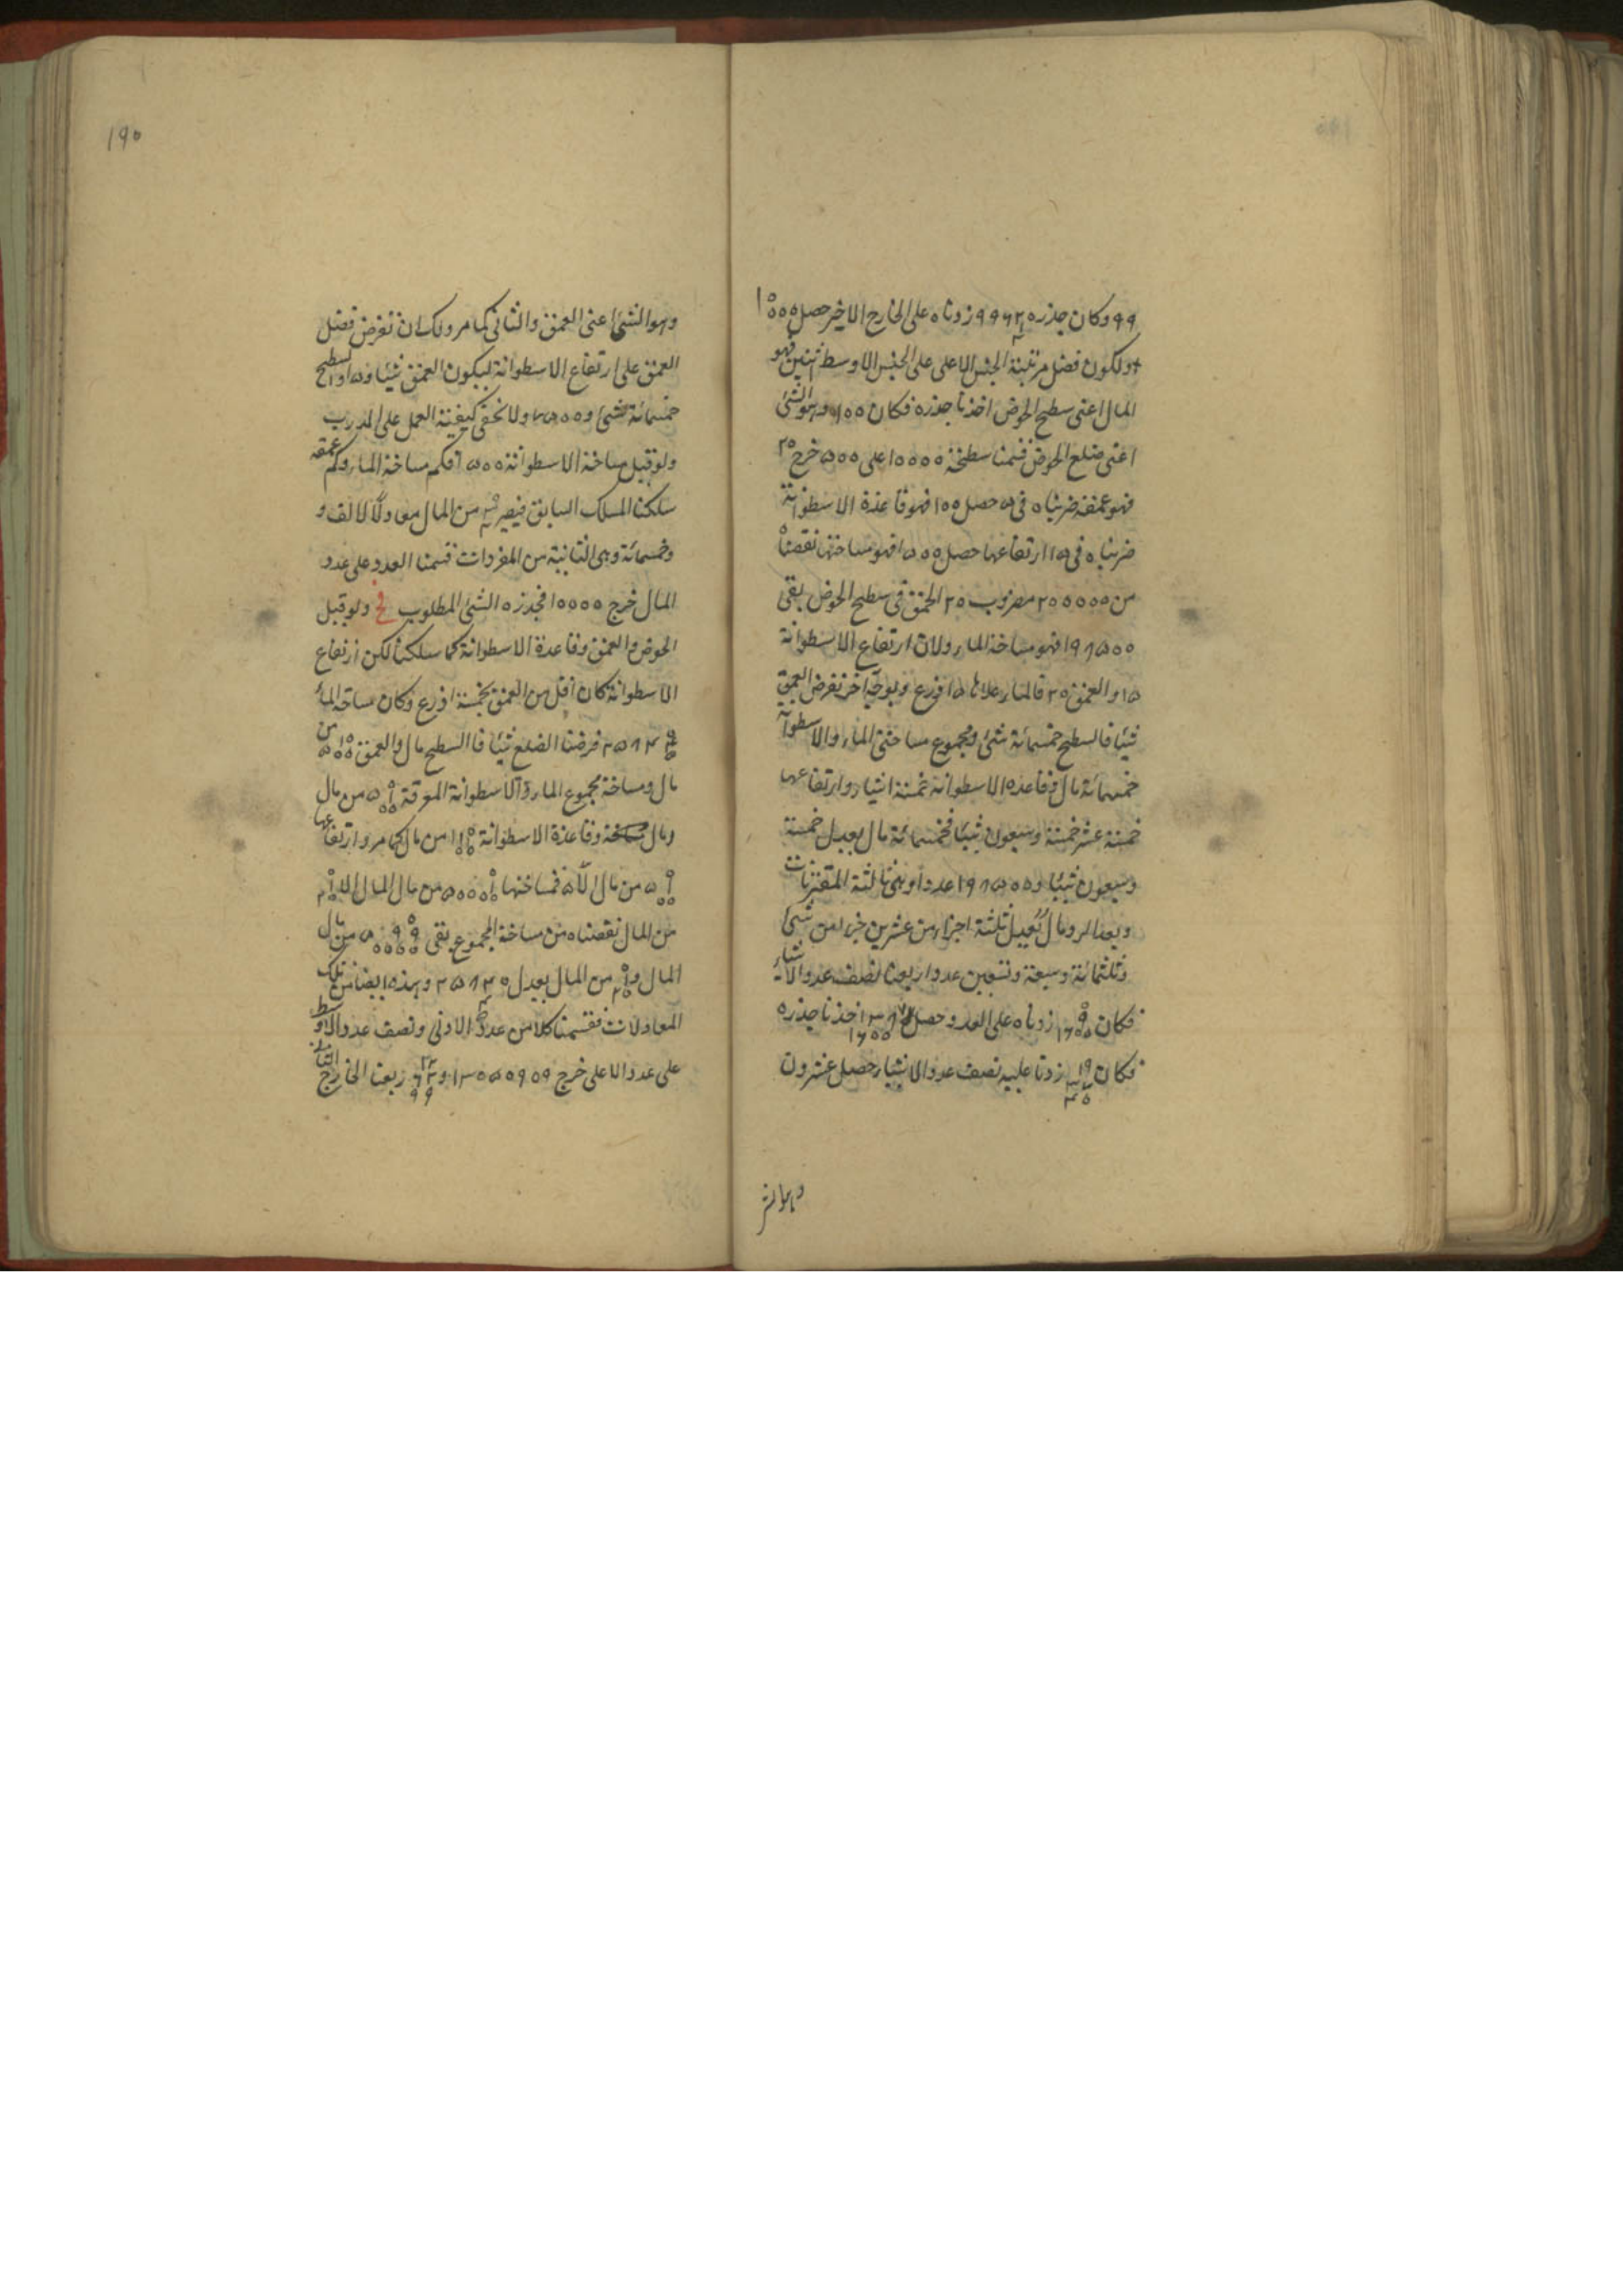 ٩٩ وكان جذره زدناه على الخارج الاخير حصل ١٠٠٠٠
ولكون فضل مرتبة الجنس الاعلى على الجنس الاوسط اثنين فهو
المال اعنى سطح الحوض اخذنا جذره فكان ١٠٠ وهو الشئ
اعنى ضلع الحوض قسمنا سطحه ١٠٠٠٠ على ٥٠٠ خرج ٢٠
فهو عمقه ضربناه فى ٥ حصل ١٠٠ فهو قاعدة الاسطوانة
ضربناه فى ١٥ ارتفاعها حصل ١٥٠٠ فهو مساحتها نقصناه
من ٢٠٠٠٠٠ مضروب ٢٠ العمق فى سطح الحوض بقى
١٩٨٥٠٠ فهو مساحة الماء ولان ارتفاع الاسطوانة
١٥ والعمق ٢٠ فالماء علاها ٥ اذرع وبوجه آخر نفرض العمق
شيئا فالسطح خمسمائة شئ ومجموع مساحتى الماء والاسطوانة
خمسمائة مال وقاعدة الاسطوانة خمسة اشياء وارتفاعها
خمسة عشر خمسة وسبعون شيئا فخمسمائة مال يعدل خمسة
وسبعون شيئا و ١٩٨٥٠٠ عددا وهى ثالثة المقترنات
وبعد الرد مال يعدل ثلثة اجزاء من عشرين جزءا من شئ
وثلثمائة وسبعة وتسعين عددا ربعنا نصف عدد الاشياء
فكان ٩ ١٦٠٠ زدناه على العدد وحصل اخذنا جذره
فكان زدنا عليه نصف عدد الاشياء حصل عشرون
وهو الش
١٩٠
وهو الشئ اعنى العمق والثانى كما مر ولك ان تفرض فضل
العمق على ارتفاع الاسطوانة ليكون العمق شيئا و ١٥ والسطح
خمسمائة شئ و ٧٥٠٠ ولا تخفى كيفية العمل على المدرب
ولو قيل مساحة الاسطوانة ١٥٠٠ فكم مساحة الماء وكم عمقه
سلكنا المسلك السابق فيصير من المال معادلا لالف و
وخمسمائة وهى الثانية من المفردات قسمنا العدد على عدد
المال خرج ١٠٠٠٠ فجذره الشئ المطلوب ولو قيل
الحوض والعمق وقاعدة الاسطوانة كما سلكنا لكن ارتفاع
الاسطوانة كان اقل من العمق بخمسة اذرع وكان مساحة الماء
فرضنا الضلع شيئا فالسطح مال والعمق من
مال ومساحة مجموع الماء والاسطوانة المغرقة من مال
مال وقاعدة الاسطوانة من مال كما مر وارتفاعها
من مال الا ٥ فمساحتها من مال المال الا
من المال نقصناه من مساحة المجموع بقى من مال
المال و من المال يعدل وهذه ايضا من تلك
المعادلات فقسمنا كلا من عدد الادنى ونصف عدد الاوسط
على عدد الاعلى خرج ربعنا الخارج الثانى